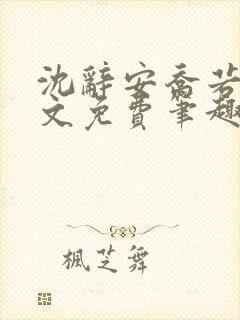 沈辭安喬若
文免費筆趣
楓芝舞